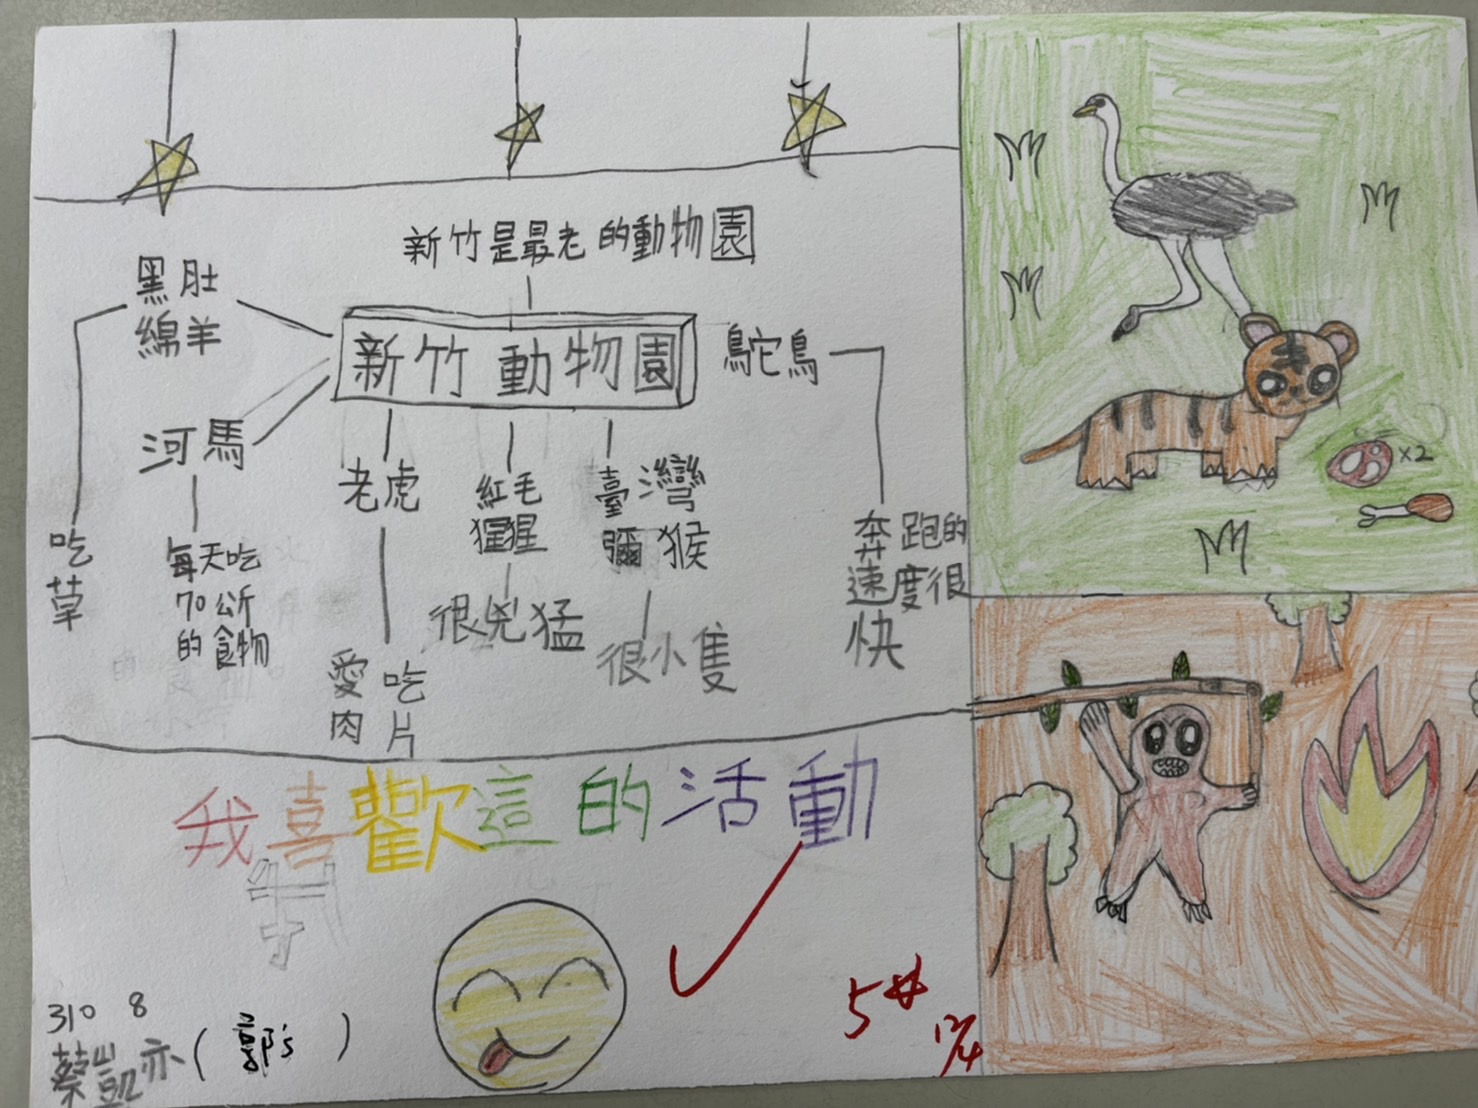 新竹是最老的動物園
新竹動物園
黑肚
綿羊
吃
草
河馬
每天吃
70公斤
的食物
老虎
愛吃
肉片
紅毛
猩猩
很兇猛
臺灣
獼猴
很小隻
鴕鳥
奔跑的
速度很
快
×2
我喜歡這的活動
310 8
蔡凱亦(郭's)
5*
12/4